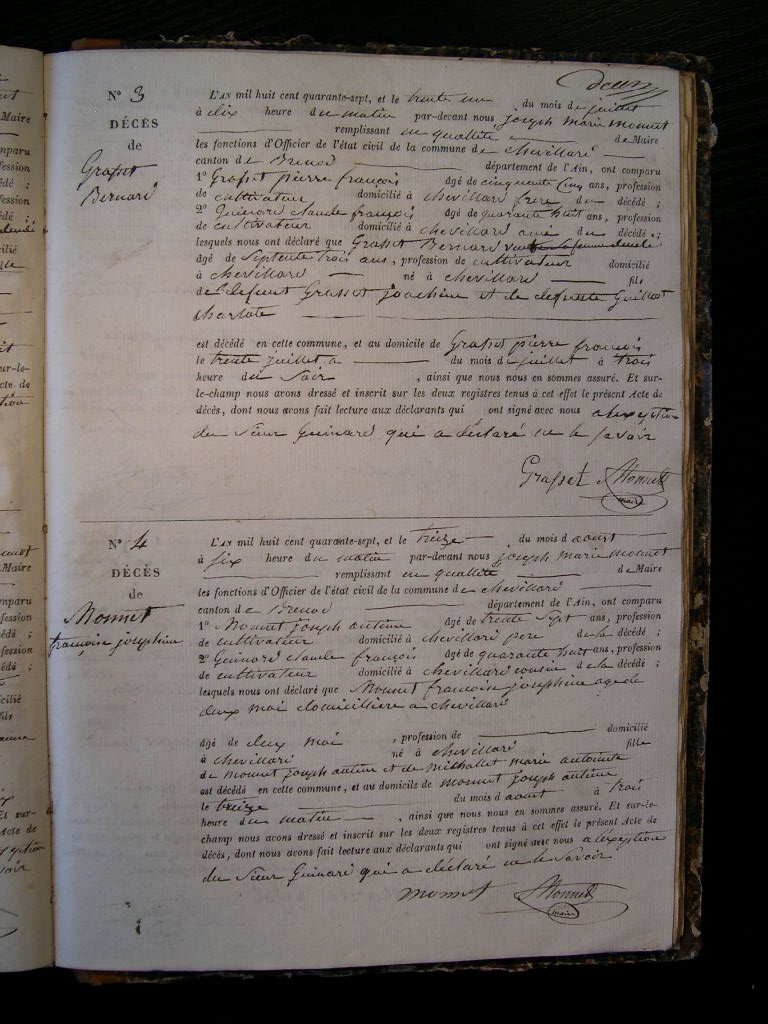 deux
N° 3
DÉCÈS
de
Grasset
Bernard
L'AN mil huit cent quarante-sept, et le trente un du mois de juillet
à dix heure du matin par-devant nous joseph marie monnet
remplissant en quallité de Maire
les fonctions d'Officier de l'état civil de la commune de chevillard
canton de Brenod département de l'Ain, ont comparu
1° Grasset pierre françois âgé de cinquente cinq ans, profession
de cultivateur domicilié à chevillard frere du décédé ;
2° Guinard claude françois âgé de quarante huit ans, profession
de cultivateur domicilié à chevillard ami du décédé ;
lesquels nous ont déclaré que Grasset Bernard
âgé de septente trois ans, profession de cultivateur domicilié
à chevillard né à chevillard fils
de defunt Grasset joachim et de defunte Guillot
charlote
est décédé en cette commune, et au domicile de Grasset pierre francois
le trente juillet a du mois de juillet à trois
heure du soir , ainsi que nous nous en sommes assuré. Et sur-
le-champ nous avons dressé et inscrit sur les deux registres tenus à cet effet le présent Acte de
décès, dont nous avons fait lecture aux déclarants qui ont signé avec nous a lexeption
du sieur Guinard qui a déclaré ne le savoir
Grasset Monnet
maire
N° 4
DÉCÈS
de
Monnet
françoise josephine
L'AN mil huit cent quarante-sept, et le treize du mois d aoust
à six heure du matin par-devant nous joseph marie monnet
remplissant en quallité de Maire
les fonctions d'Officier de l'état civil de la commune de chevillard
canton de Brenod département de l'Ain, ont comparu
1° Monnet joseph antime âgé de trente sept ans, profession
de cultivateur domicilié à chevillard pere de la décédé ;
2° Guinard claude françois âgé de quarante huit ans, profession
de cultivateur domicilié à chevillard cousin de la décédé ;
lesquels nous ont déclaré que Monnet francoise josephine age de
deux moi domicilliere a chevillard
âgé de deux moi , profession de domicilié
à chevillard né à chevillard fille
de monnet joseph antime et de michallet marie antoinette
est décédé en cette commune, et au domicile de monnet joseph antime
le treize du mois d aoust à trois
heure du matin , ainsi que nous nous en sommes assuré. Et sur-le-
champ nous avons dressé et inscrit sur les deux registres tenus à cet effet le présent Acte de
décès, dont nous avons fait lecture aux déclarants qui ont signé avec nous a lexeption
du sieur Guinard qui a déclaré ne le savoir
monnet Monnet
maire